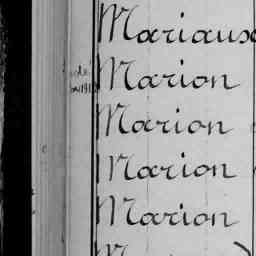 Mariaux
Marion
Marion
Marion
Marion